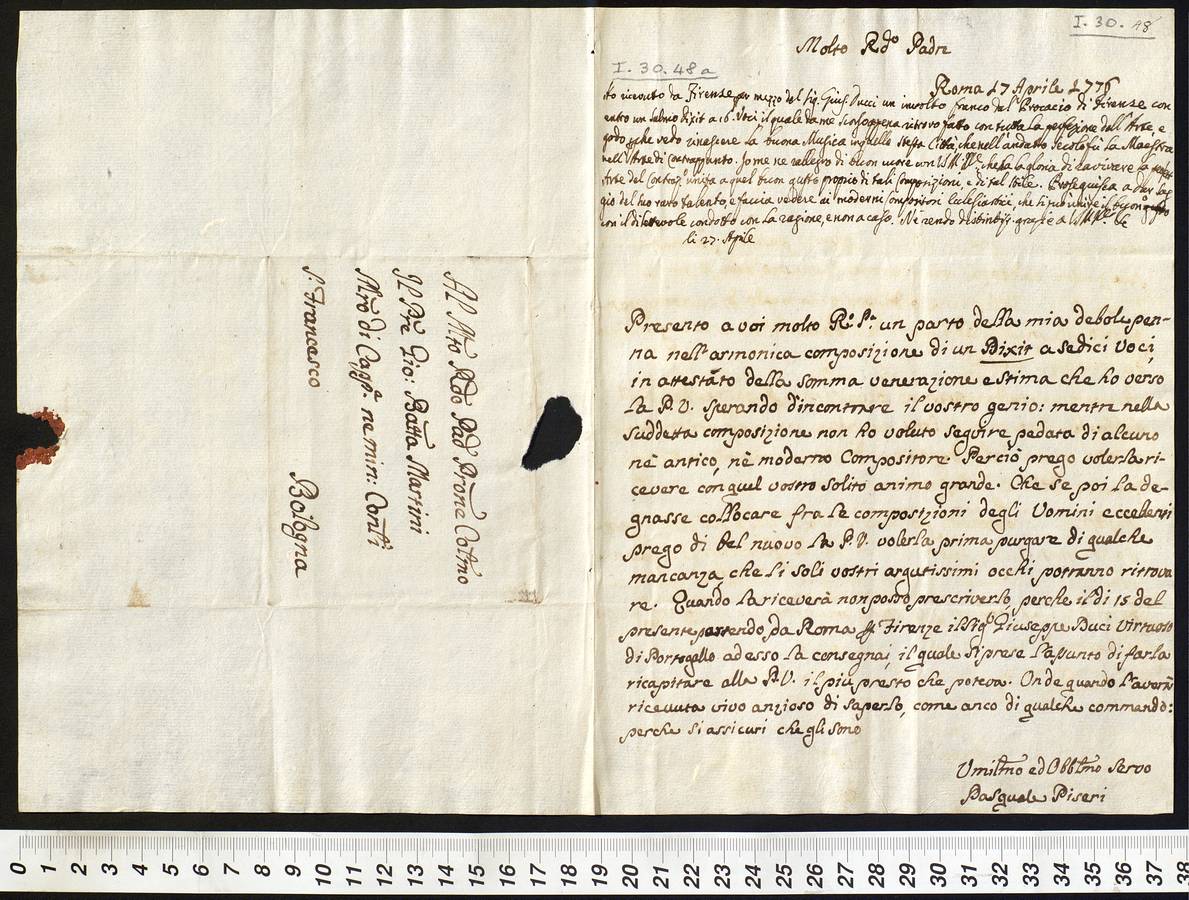 I. 30. 48
Molto Rdo Padre
I. 30. 48a
Roma 17 Aprile 1776
Ho ricevuto da Firenze per mezzo del Sig. Gius. Ducci un involto franco dal Procacio di Firenze con
entro un Salmo Dixit a 16. Voci, il quale da me scorso appena ritrovo fatto con tutta la perfezione dell'Arte, e
godo che vedo rinascere la buona Musica in quella stessa Città, che nell'andato Secolo fù la Maestra
nell'Arte di Contrappunto. Io me ne rallegro di buon cuore con che ha la gloria di ravvivare la
Arte del Contrap.to unita a quel buon gusto proprio di tali Composizioni, e di tal Stile. Proseguisca a dar
gio del suo raro talento, e faccia vedere ai moderni Compositori Ecclesiastici, che si può unire il buon gusto
con il dilettevole condotto con la ragione, e non a caso. Ne rendo distintiss. grazie a
li 27. Aprile
Presento a voi molto R.o P.e un parto della mia debole pen-
na nell'armonica composizione di un Dixit a sedici Voci,
in attestato della somma venerazione e stima che ho verso
la P. V. sperando d'incontrare il vostro genio: mentre nella
suddetta composizione non ho voluto seguire pedata di alcuno
nè antico, nè moderno Compositore. Perciò prego volerla ri-
cevere con quel vostro solito animo grande. Che se poi la de-
gnasse collocare fra le composizioni degli Uomini eccellenti
prego di bel nuovo la P. V. volerla prima purgare di qualche
mancanza, che li soli vostri argutissimi occhi potranno ritrova
re. Quando la riceverà non posso prescriverlo, perche il dì 15 del
presente partendo da Roma per Firenze il Sig.o Giuseppe Duci Virtuoso
di Portogallo ad esso la consegnai, il quale si prese l'assunto di farla
ricapitare alla P. V. il più presto che poteva. Onde quando l'averà
ricevuta vivo anzioso di saperlo, come anco di qualche commando:
perche si assicuri che gli sono
Umilmo ed Obblmo Servo
Pasquale Piseri
Al Mto Rdo Pad Prone Colmo
Il Pre Gio: Batta Martini
Mro di Capp.a ne min: Conti
S. Francesco
Bologna
0 1 2 3 4 5 6 7 8 9 10 11 12 13 14 15 16 17 18 19 20 21 22 23 24 25 26 27 28 29 30 31 32 33 34 35 36 37 38